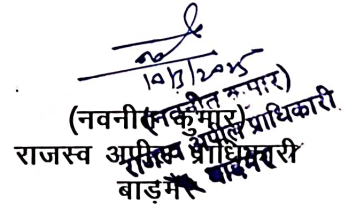 10/3/2025
(नवनीत कुमार)
राजस्व अपील प्राधिकारी
बाड़मेर
(नवनीत कुमार)
राजस्व अपील प्राधिकारी
बाडमेर